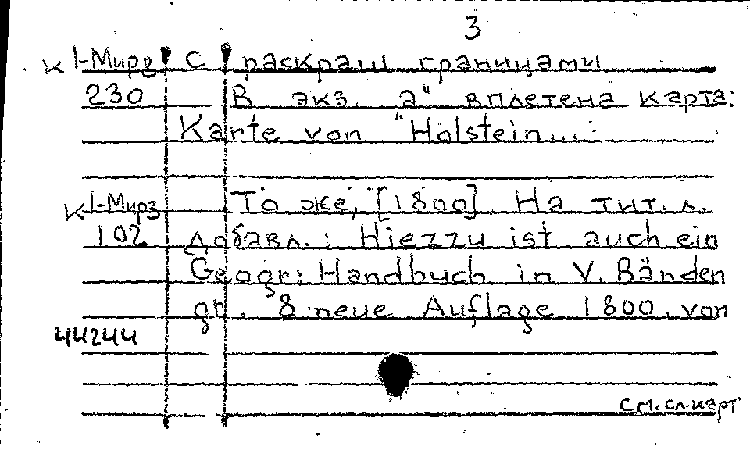 3
К 1-Мирз С раскраш границами
230 В экз. а" вплетена карта:
Karte von "Holstein...:
К 1-Мирз То же, [1800]. На тит. л.
102 добавл.: Hiezzu ist auch ein
Geogr: Handbuch in V. Bänden
gr. 8 neue Auflage 1800. von
44244
См. сл. карт